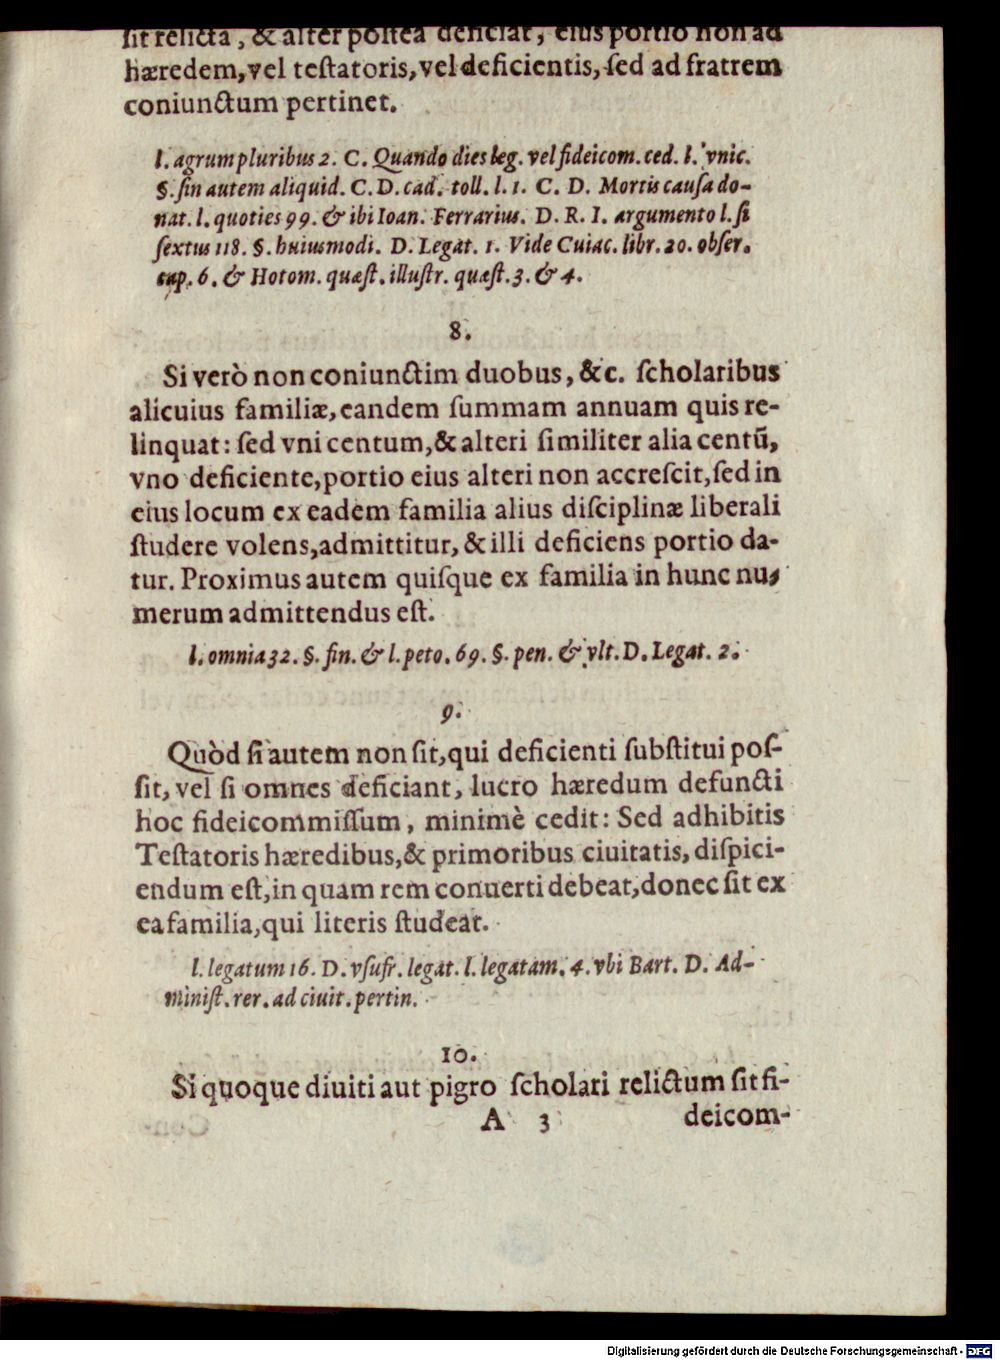 sit relicta, & alter postea deficiat, eius portio non ad
hæredem, vel testatoris, vel deficientis, sed ad fratrem
coniunctum pertinet.
l. agrum pluribus 2. C. Quando dies leg. vel fideicom. ced. l. vnic.
§. sin autem aliquid. C. D. cad. toll. l. 1. C. D. Mortis causa do-
nat. l. quoties 99. & ibi Ioan. Ferrarius. D. R. I. argumento l. si
sextus 118. §. huiusmodi. D. Legat. 1. Vide Cuiac. libr. 20. obser.
cap. 6. & Hotom. quæst. illustr. quæst. 3. & 4.
8.
Si verò non coniunctim duobus, &c. scholaribus
alicuius familiæ, eandem summam annuam quis re-
linquat: sed vni centum, & alteri similiter alia centũ,
vno deficiente, portio eius alteri non accrescit, sed in
eius locum ex eadem familia alius disciplinæ liberali
studere volens, admittitur, & illi deficiens portio da-
tur. Proximus autem quisque ex familia in hunc nu-
merum admittendus est.
l. omnia 32. §. fin. & l. peto. 69. §. pen. & vlt. D. Legat. 2.
9.
Quòd si autem non sit, qui deficienti substitui pos-
sit, vel si omnes deficiant, lucro hæredum defuncti
hoc fideicommissum, minimè cedit: Sed adhibitis
Testatoris hæredibus, & primoribus ciuitatis, dispici-
endum est, in quam rem conuerti debeat, donec sit ex
ea familia, qui literis studeat.
l. legatum 16. D. vsufr. legat. l. legatam. 4. vbi Bart. D. Ad-
minist. rer. ad ciuit. pertin.
10.
Si quoque diuiti aut pigro scholari relictum sit fi-
A 3 deicom-
Digitalisierung gefördert durch die Deutsche Forschungsgemeinschaft - DFG